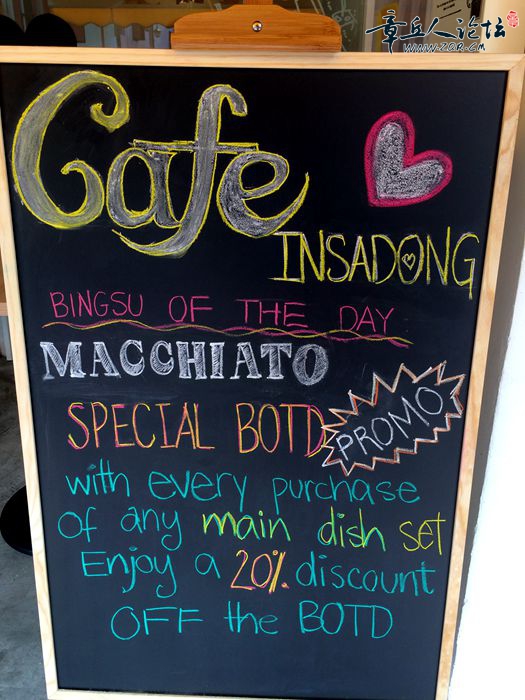 章丘人论坛
WWW.ZQR.CM
Cafe
INSADONG
BINGSU OF THE DAY
MACCHIATO
SPECIAL BOTD
PROMO
with every purchase
of any main dish set
Enjoy a 20% discount
OFF the BOTD